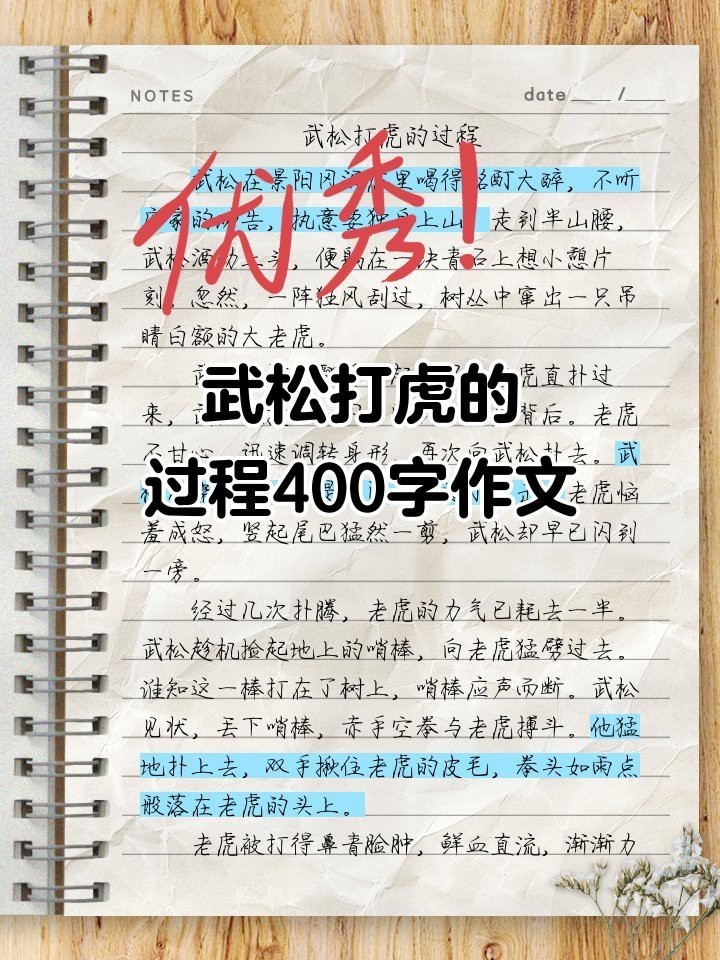 NOTES
date /
武松打虎的过程
武松在景阳冈酒店里喝得酩酊大醉，不听
店家的劝告，执意要独自上山。走到半山腰，
武松酒劲上头，便躺在一块青石上想小憩片
刻。忽然，一阵狂风刮过，树丛中窜出一只吊
睛白额的大老虎。
优秀!
武 虎直扑过
来， 背后。老虎
不甘心，迅速调转身形，再次向武松扑去。武
老虎恼
羞成怒，竖起尾巴猛然一剪，武松却早已闪到
一旁。
武松打虎的
过程400字作文
经过几次扑腾，老虎的力气已耗去一半。
武松趁机捡起地上的哨棒，向老虎猛劈过去。
谁知这一棒打在了树上，哨棒应声而断。武松
见状，丢下哨棒，赤手空拳与老虎搏斗。他猛
地扑上去，双手揪住老虎的皮毛，拳头如雨点
般落在老虎的头上。
老虎被打得鼻青脸肿，鲜血直流，渐渐力